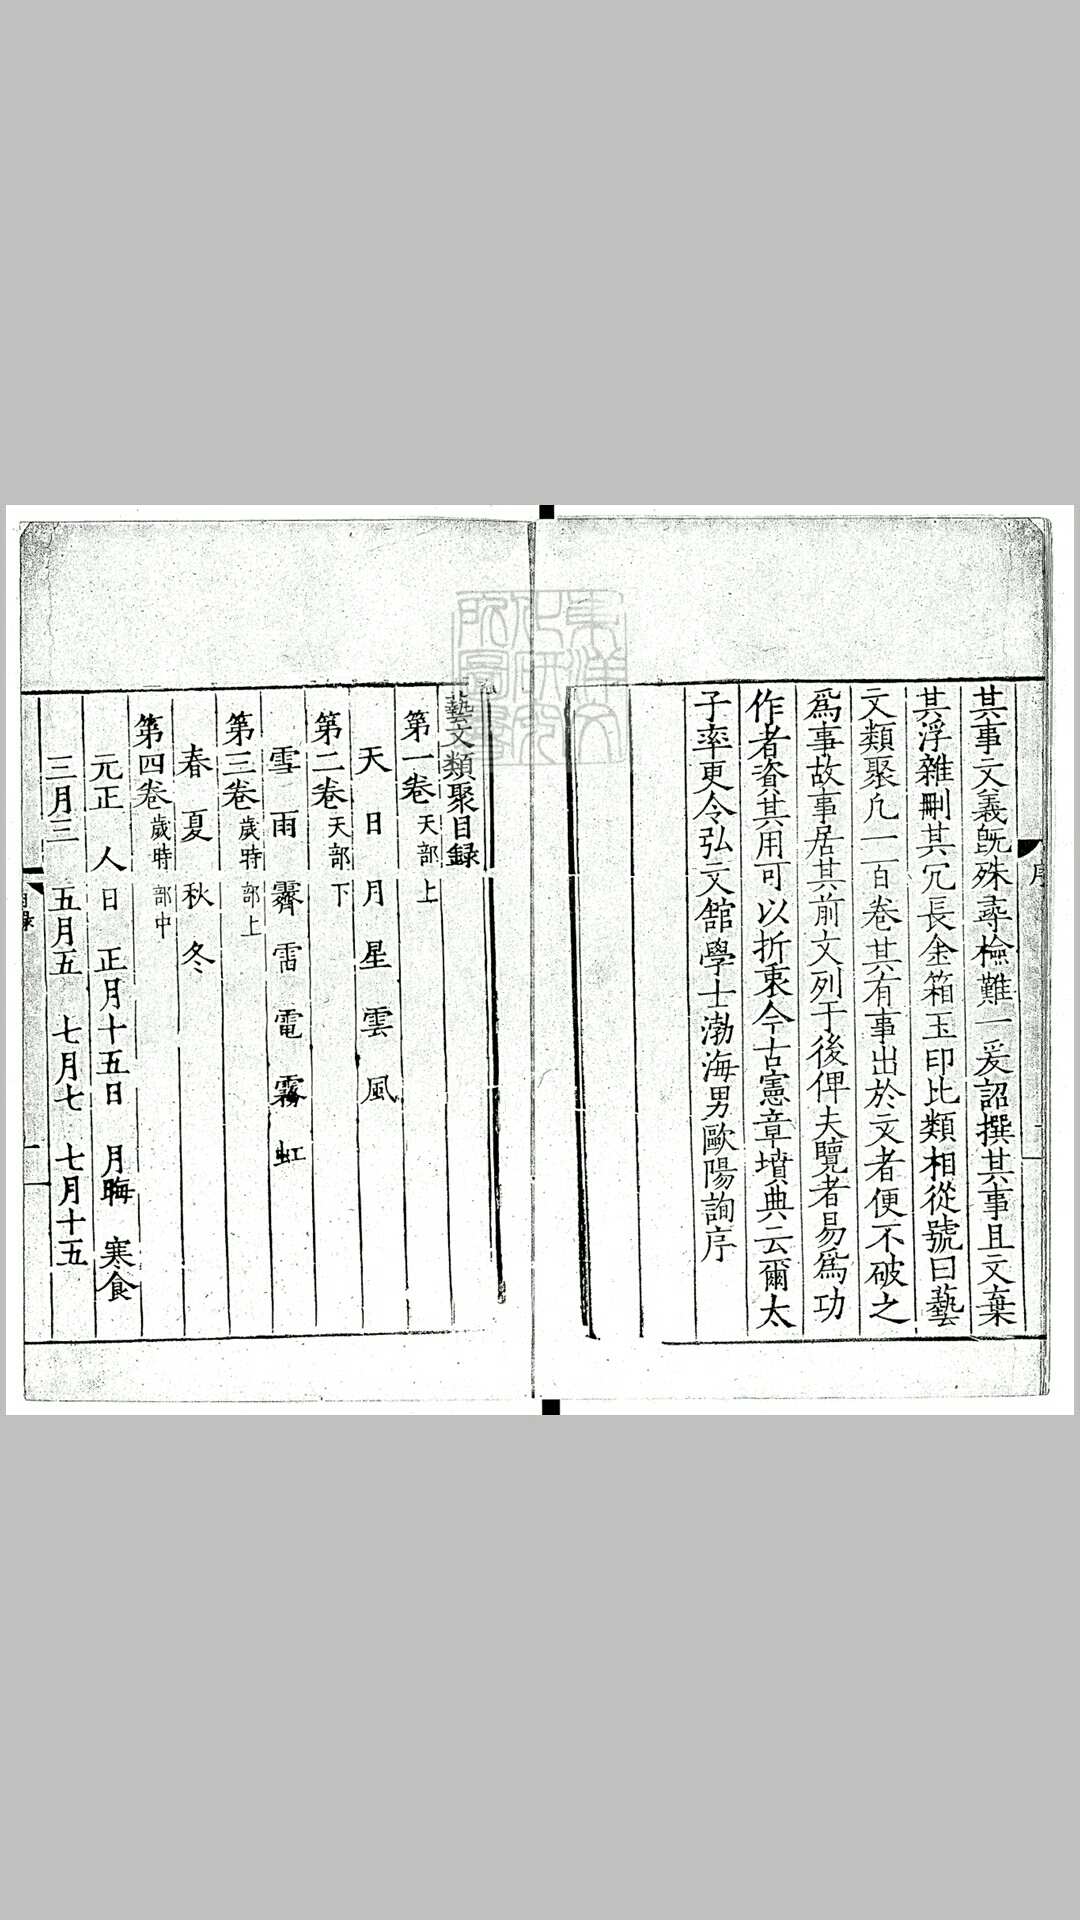 序
其事文義既殊尋檢難一爰詔撰其事且文棄
其浮雜刪其冗長金箱玉印比類相從號曰藝
文類聚凡一百卷其有事出於文者便不破之
爲事故事居其前文列于後俾夫覽者易爲功
作者資其用可以折衷今古憲章墳典云爾太
子率更令弘文館學士渤海男歐陽詢序
藝文類聚目錄
第一卷天部上
天 日 月 星 雲 風
第二卷天部下
雪 雨 霽 雷 電 霧 虹
第三卷歲時部上
春 夏 秋 冬
第四卷歲時部中
元正 人日 正月十五日 月晦 寒食
三月三 五月五 七月七 七月十五
目録
一